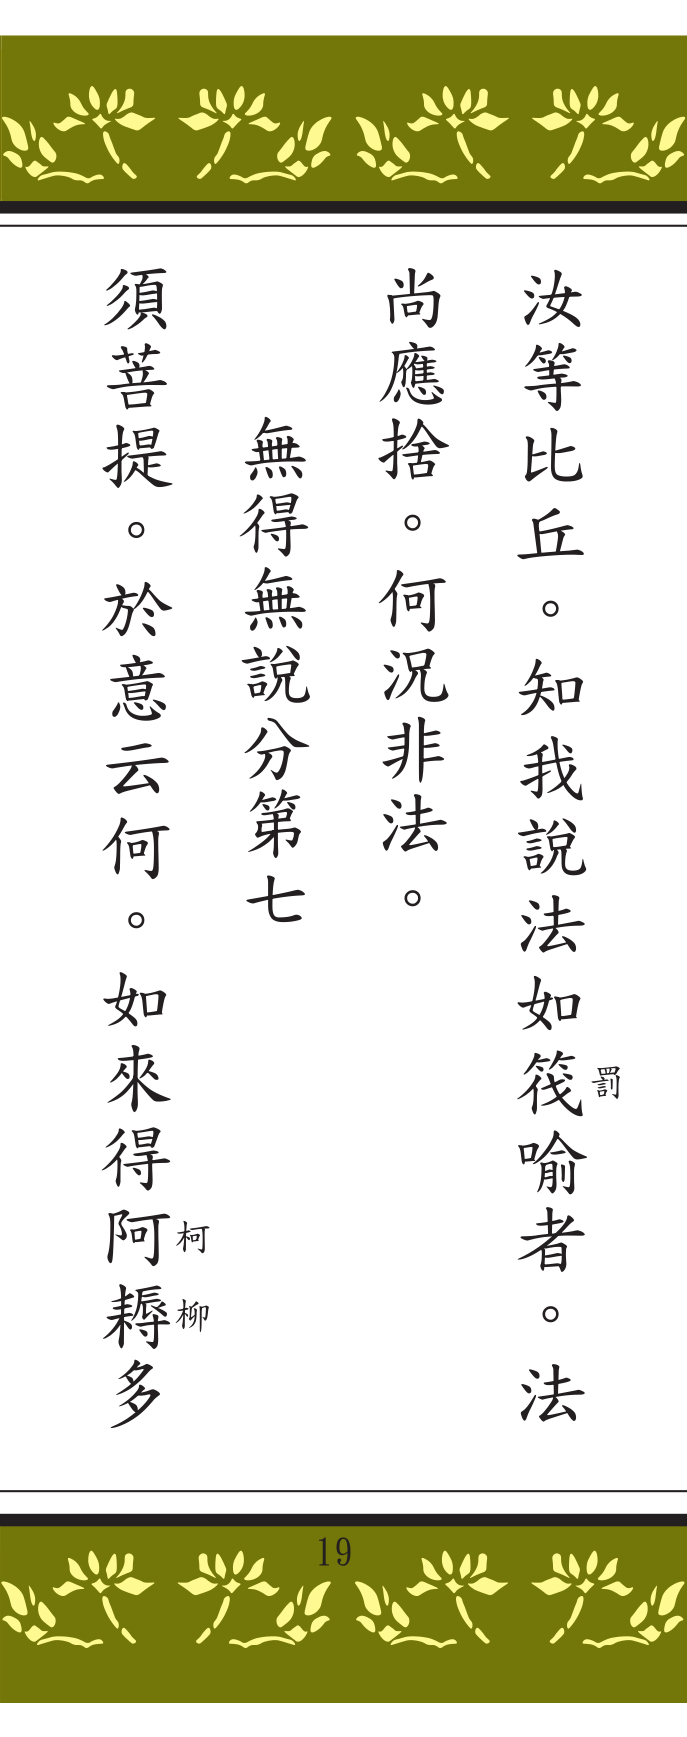 汝等比丘。知我說法如筏罰喻者。法
尚應捨。何況非法。
無得無說分第七
須菩提。於意云何。如來得阿柯耨柳多
19